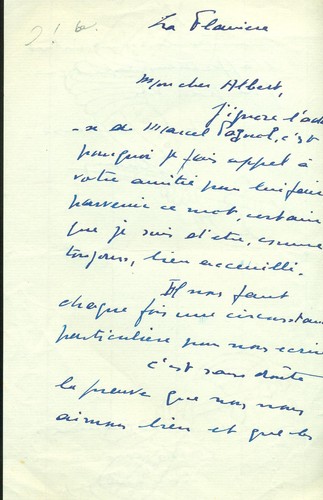 La
Mon cher Albert,
J'ignore l'ad
-se de Marcel Pagnol, c'est
pourquoi je fais appel à
votre amitié pour lui faire
parvenir ce mot, certain
que je suis d'être, comme
toujours, bien accueilli.
Il nous faut
chaque fois une circonstan
particulière pour nous écrire
c'est sans doute
la preuve que nous nous
aimons bien et que les